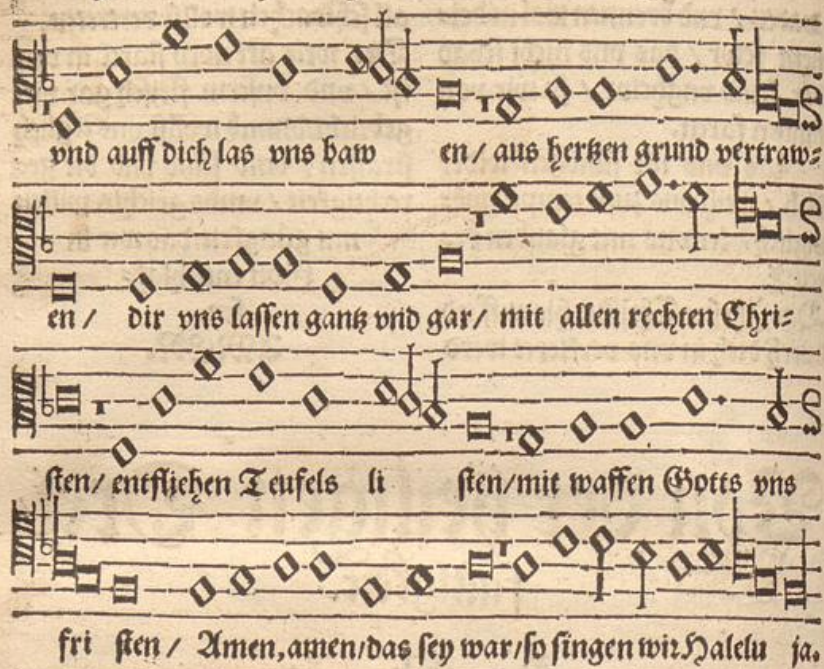 vnd auff dich las vns baw en / aus hertzen grund vertraw⸗
en / dir vns lassen gantz vnd gar / mit allen rechten Chri⸗
sten / entfliehen Teufels li sten / mit waffen Gotts vns
fri sten / Amen, amen / das sey war / so singen wir Halelu ja.